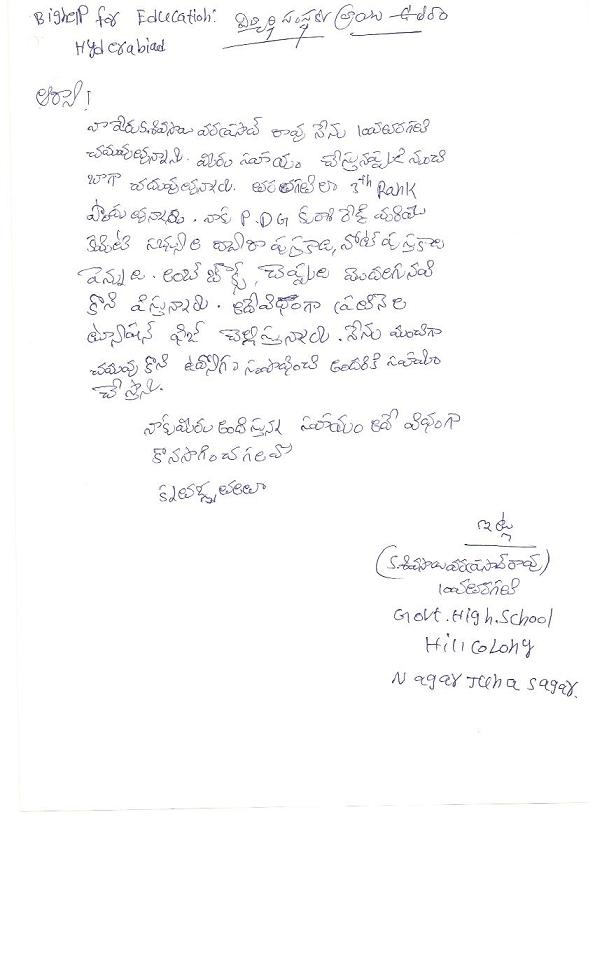 BigHelP for Education:
Hyderabad
నా పేరు కె. శివసాయి వరప్రసాద్ రావు నేను 10వతరగతి
చదువుతున్నాను. మీరు సహాయం చేస్తున్నప్పటి నుంచి
బాగా చదువుతున్నాను. తరగతిలో 3th Rank
నాకు P.D.G
పుస్తకాలు, నోట్ పుస్తకాలు
పెన్నులు. లంచ్ బాక్స్, చెప్పులు మొదలగునవి
కొని ఇస్తున్నారు. అదేవిధంగా ప్రతినెల
ట్యూషన్ ఫీజు చెల్లిస్తున్నారు. నేను మంచిగా
చదువుకొని ఉద్యోగం సంపాదించి అందరికి సహాయం
చేస్తాను.
నాకు మీరు అందిస్తున్న సహాయం అదే విధంగా
కొనసాగించగలరు
కృతజ్ఞతలు
ఇట్లు
(కె. శివసాయి వరప్రసాద్ రావు)
10వతరగతి
Govt. High. School
Hill Colony
Nagarjuna Sagar.